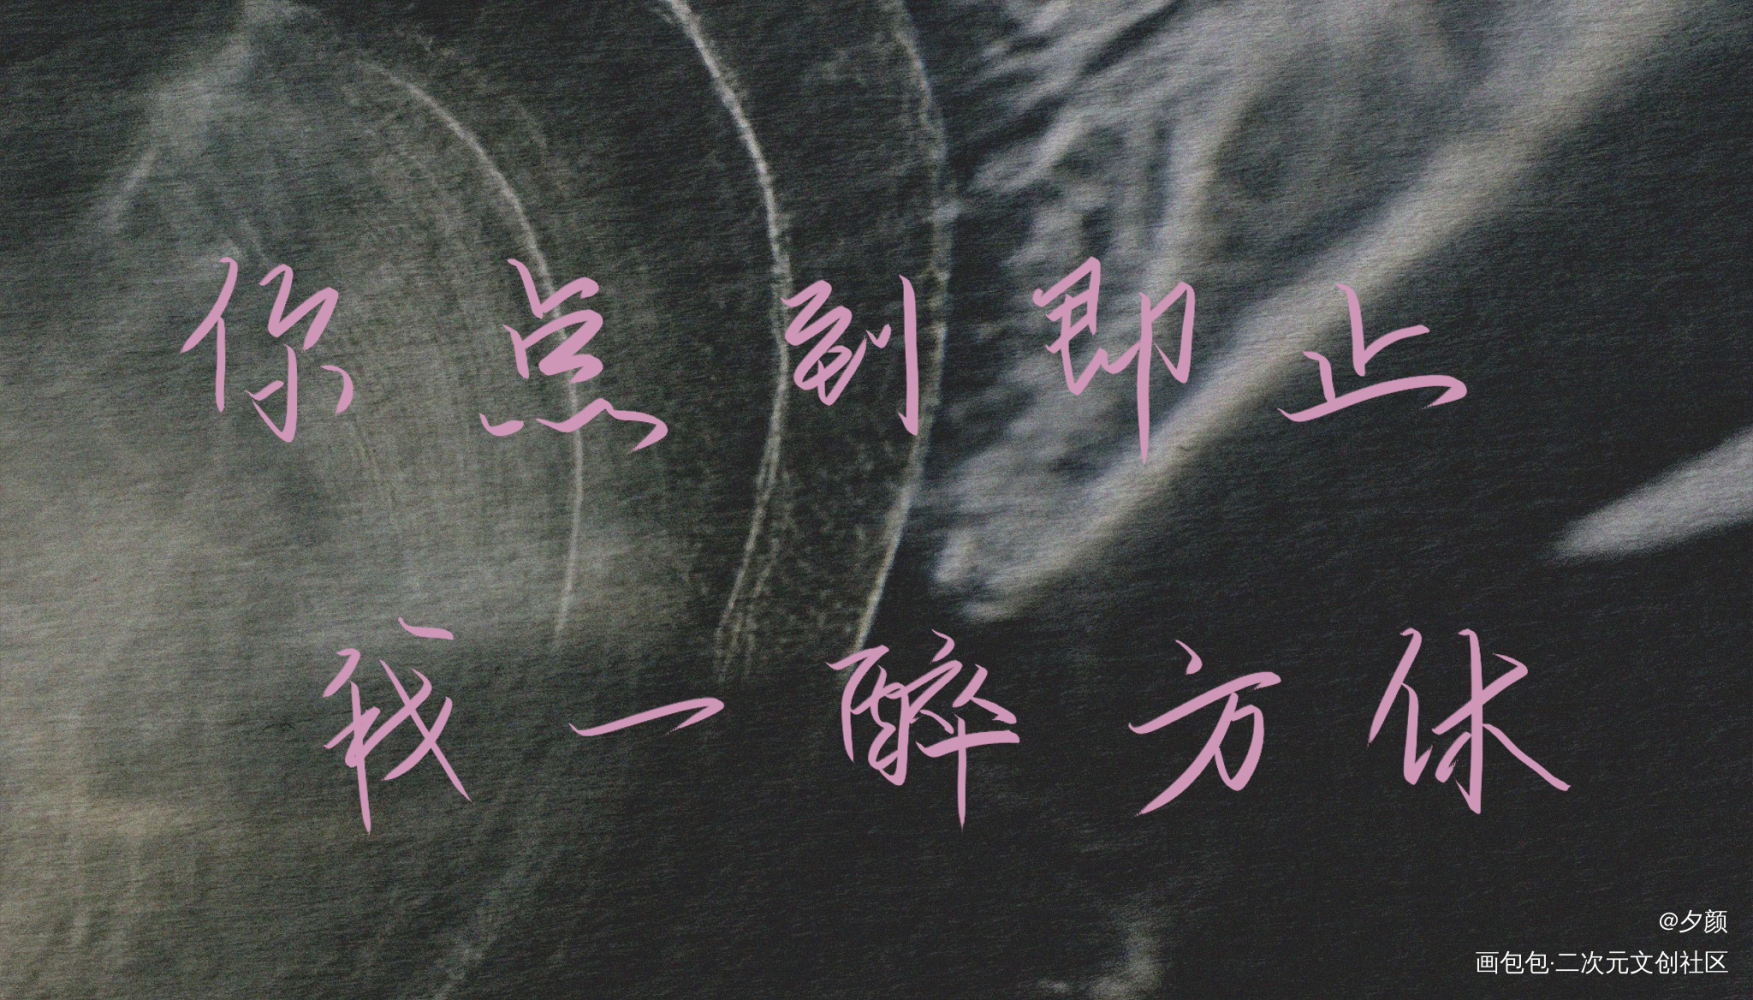 你点到即止
我一醉方休
@夕颜
画包包·二次元文创社区